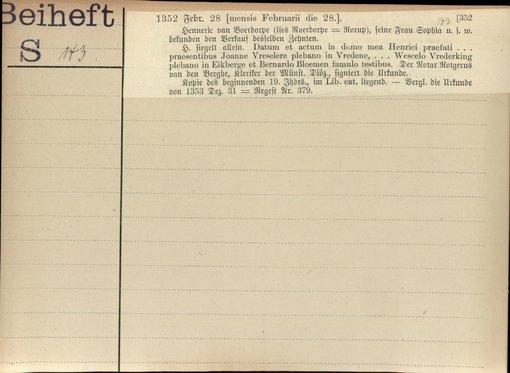 Beiheft
S 143
1352 Febr. 28 [mensis Februarii die 28.]. [352
Henneric van Boerdorpe (lies Noerdorpe = Norup), seine Frau Sophia u. s. w.
bekunden den Verkauf desselben Zehnten.
H. siegelt allein. Datum et actum in domo mea Henrici praefati . . .
praesentibus Joanne Vreselere plebano in Vredene, . . . Wescelo Vrederking
plebano in Eikberge et Bernardo Bloemen famulo testibus. Der Notar Rotgerus
van den Berghe, Kleriker der Münst. Diöz., signiert die Urkunde.
Kopie des beginnenden 19. Jhdts., im Lib. cat. liegend. — Vergl. die Urkunde
von 1353 Dez. 31 = Regest Nr. 379.